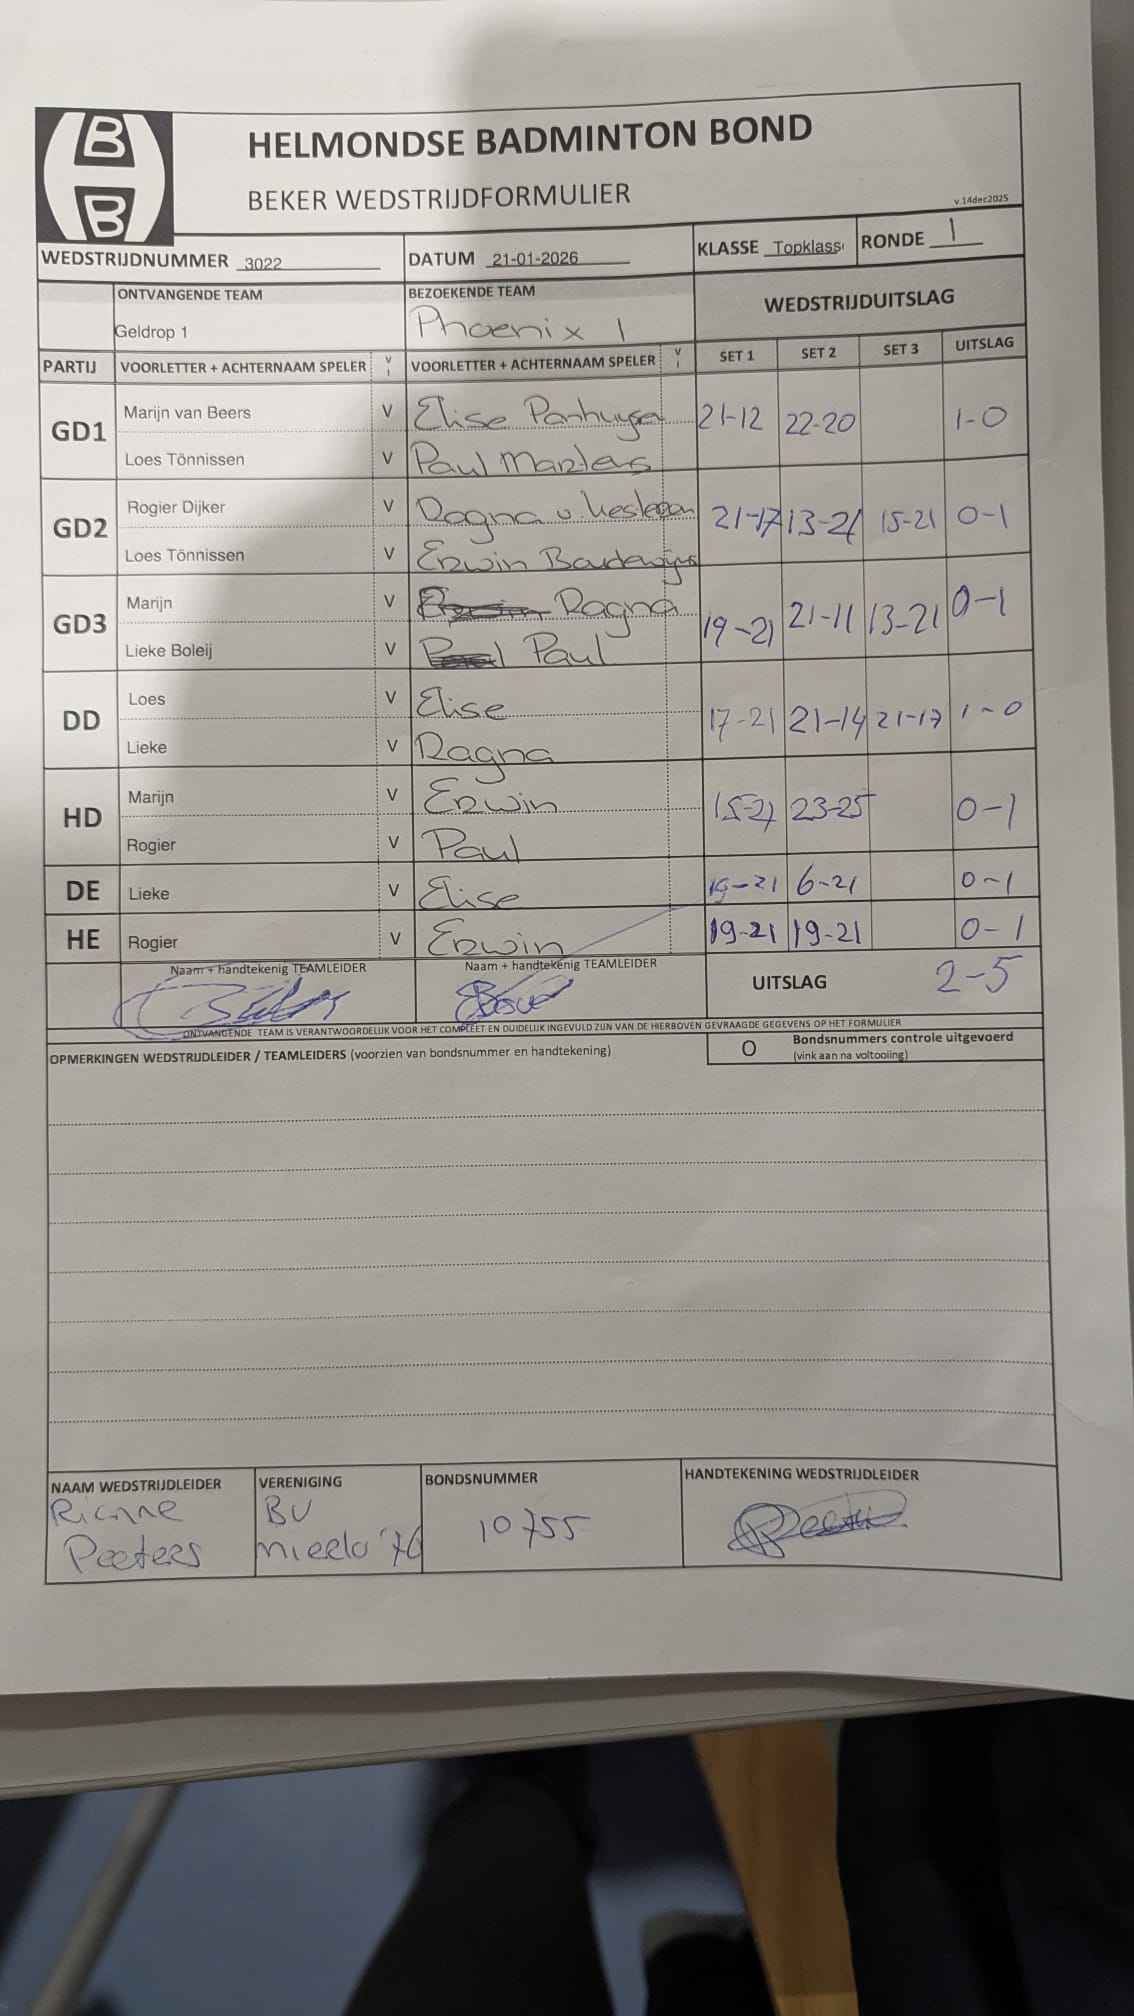 HELMONDSE BADMINTON BOND
BEKER WEDSTRIJDFORMULIER
v.14dec2025
WEDSTRIJDNUMMER 3022 DATUM 21-01-2026 KLASSE Topklass RONDE 1
ONTVANGENDE TEAM BEZOEKENDE TEAM WEDSTRIJDUITSLAG
Geldrop 1 Phoenix 1
PARTIJ VOORLETTER + ACHTERNAAM SPELER V I VOORLETTER + ACHTERNAAM SPELER V I SET 1 SET 2 SET 3 UITSLAG
GD1 Marijn van Beers V Elise Panhuysen 21-12 22-20 1-0
Loes Tönnissen V Paul Martens
GD2 Rogier Dijker V Ragna v. 21-17 13-21 15-21 0-1
Loes Tönnissen V Erwin Boudewijns
GD3 Marijn V Ragna 19-21 21-11 13-21 0-1
Lieke Boleij V Paul
DD Loes V Elise 17-21 21-14 21-17 1-0
Lieke V Ragna
HD Marijn V Erwin 15-21 23-25 0-1
Rogier V Paul
DE Lieke V Elise 15-21 6-21 0-1
HE Rogier V Erwin 19-21 19-21 0-1
Naam + handtekenig TEAMLEIDER Naam + handtekenig TEAMLEIDER UITSLAG 2-5
ONTVANGENDE TEAM IS VERANTWOORDELIJK VOOR HET COMPLEET EN DUIDELIJK INGEVULD ZIJN VAN DE HIERBOVEN GEVRAAGDE GEGEVENS OP HET FORMULIER
OPMERKINGEN WEDSTRIJDLEIDER / TEAMLEIDERS (voorzien van bondsnummer en handtekening) O Bondsnummers controle uitgevoerd
(vink aan na voltooiing)
NAAM WEDSTRIJDLEIDER VERENIGING BONDSNUMMER HANDTEKENING WEDSTRIJDLEIDER
Rianne BV 10755
Peeters mierlo '76